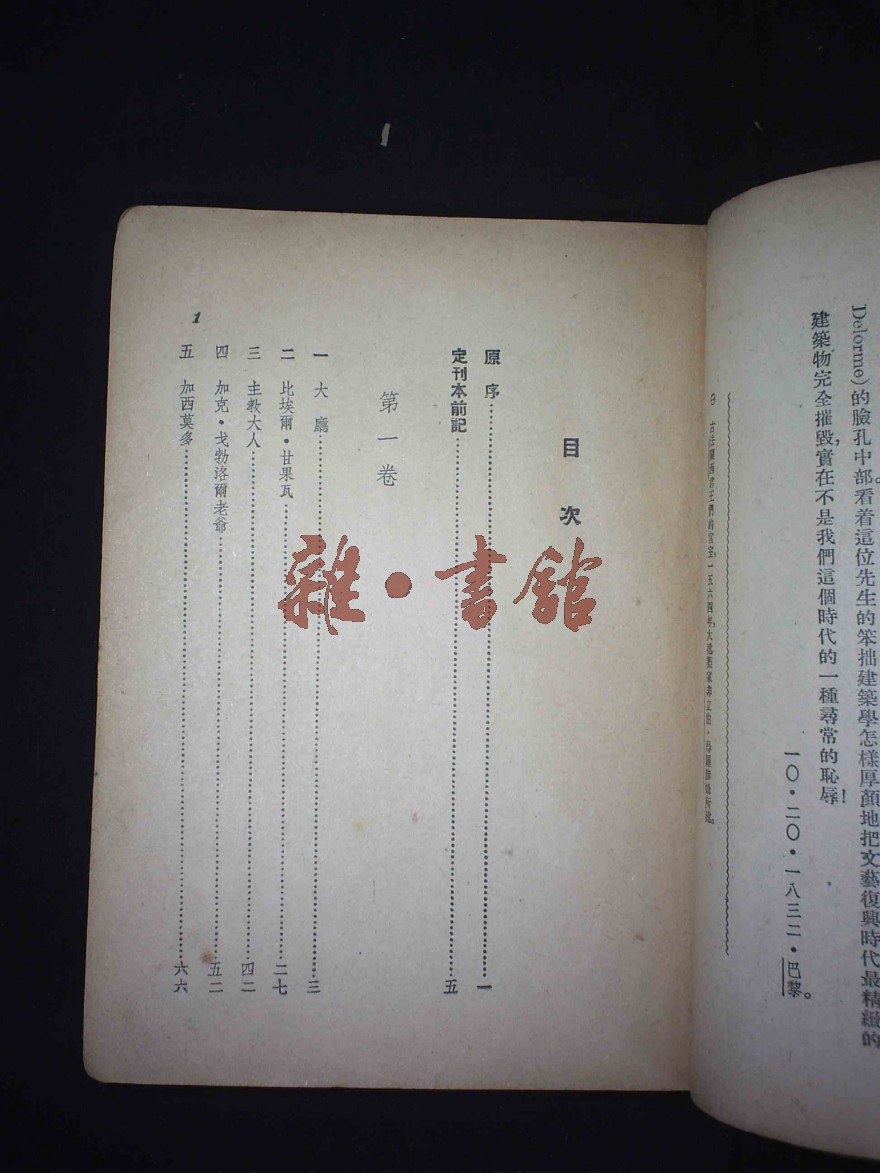 Delorme)的臉孔中部。看着這位先生的笨拙建築學怎樣厚顏地把文藝復興時代最精緻的
建築物完全摧毀，實在不是我們這個時代的一種尋常的恥辱！
一〇・二〇・一八三二・巴黎。
目次
原序 一
定刊本前記 五
第一卷
一 大廳 三
二 比埃爾・甘果瓦 二七
三 主敎大人 四二
四 加克・戈勃洛爾老爺 五二
五 加西莫多 六六
1
雜・書館